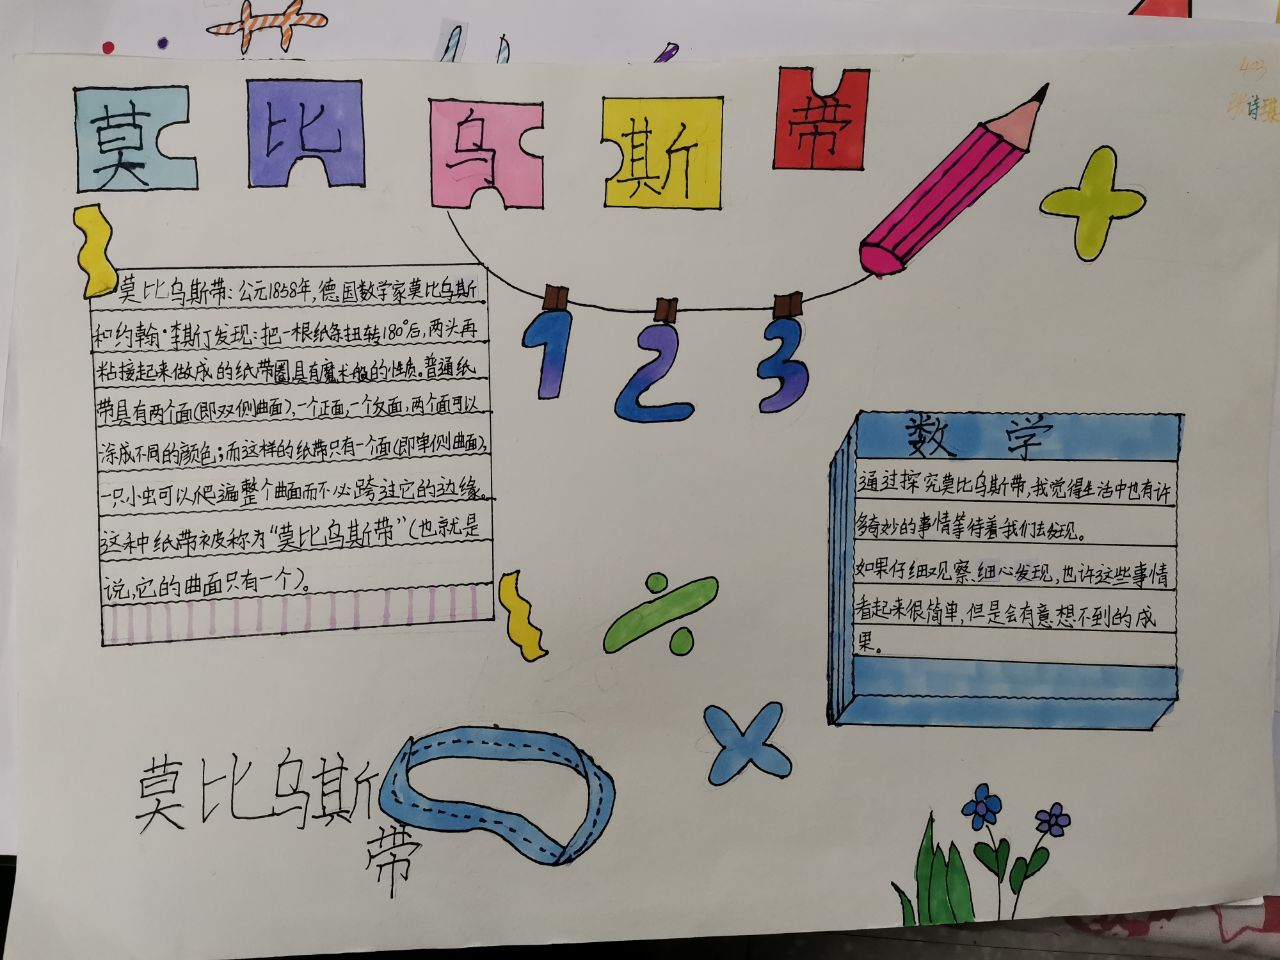 403
张诗琪
莫比乌斯带
莫比乌斯带:公元1858年,德国数学家莫比乌斯
和约翰·李斯丁发现:把一根纸条扭转180°后,两头再
粘接起来做成的纸带圈,具有魔术般的性质。普通纸
带具有两个面(即双侧曲面),一个正面,一个反面,两个面可以
涂成不同的颜色;而这样的纸带只有一个面(即单侧曲面),
一只小虫可以爬遍整个曲面而不必跨过它的边缘。
这种纸带被称为“莫比乌斯带”(也就是
说,它的曲面只有一个)。
1 2 3
数学
通过探究莫比乌斯带,我觉得生活中也有许
多奇妙的事情等待着我们去发现。
如果仔细观察、细心发现,也许这些事情
看起来很简单,但是会有意想不到的成
果。
莫比乌斯
带